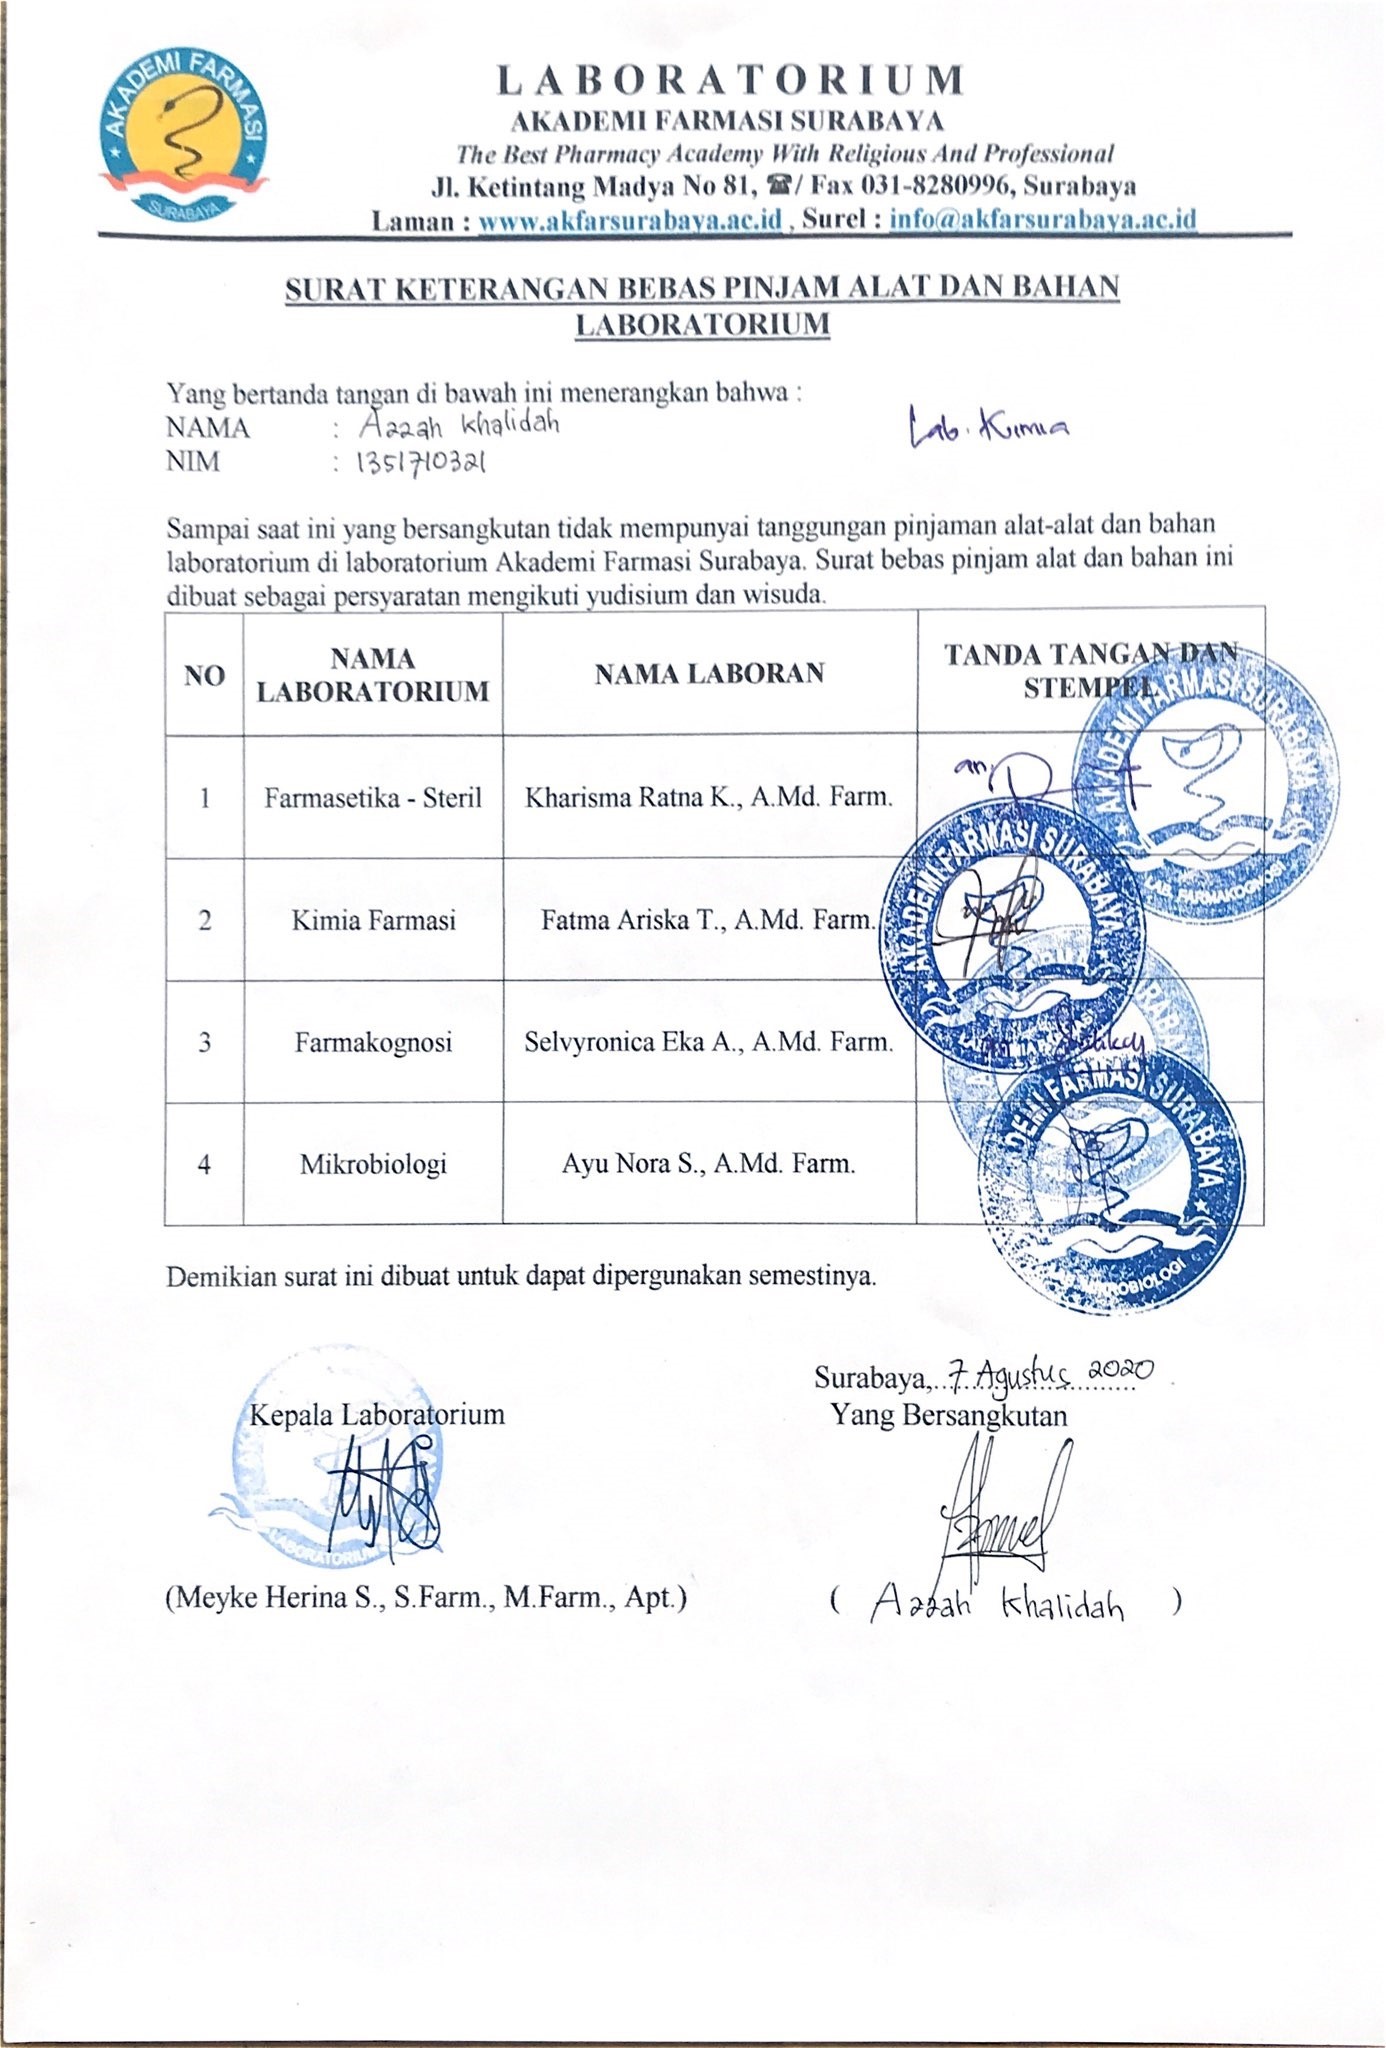 AKADEMI FARMASI
SURABAYA
LABORATORIUM
AKADEMI FARMASI SURABAYA
The Best Pharmacy Academy With Religious And Professional
Jl. Ketintang Madya No 81, ☎/ Fax 031-8280996, Surabaya
Laman : www.akfarsurabaya.ac.id , Surel : info@akfarsurabaya.ac.id
SURAT KETERANGAN BEBAS PINJAM ALAT DAN BAHAN
LABORATORIUM
Yang bertanda tangan di bawah ini menerangkan bahwa :
NAMA : Azzah Khalidah
Lab. Kimia
NIM : 1351710321
Sampai saat ini yang bersangkutan tidak mempunyai tanggungan pinjaman alat-alat dan bahan
laboratorium di laboratorium Akademi Farmasi Surabaya. Surat bebas pinjam alat dan bahan ini
dibuat sebagai persyaratan mengikuti yudisium dan wisuda.
NO NAMA LABORATORIUM NAMA LABORAN TANDA TANGAN DAN STEMPEL
1 Farmasetika - Steril Kharisma Ratna K., A.Md. Farm. an.
AKADEMI FARMASI SURABAYA
LAB. FARMAKOGNOSI
2 Kimia Farmasi Fatma Ariska T., A.Md. Farm.
AKADEMI FARMASI SURABAYA
3 Farmakognosi Selvyronica Eka A., A.Md. Farm.
4 Mikrobiologi Ayu Nora S., A.Md. Farm.
DEMI FARMASI SURABAYA
MIKROBIOLOGI
Demikian surat ini dibuat untuk dapat dipergunakan semestinya.
Surabaya, 7 Agustus 2020
Kepala Laboratorium Yang Bersangkutan
LABORATORIUM
(Meyke Herina S., S.Farm., M.Farm., Apt.) ( Azzah Khalidah )